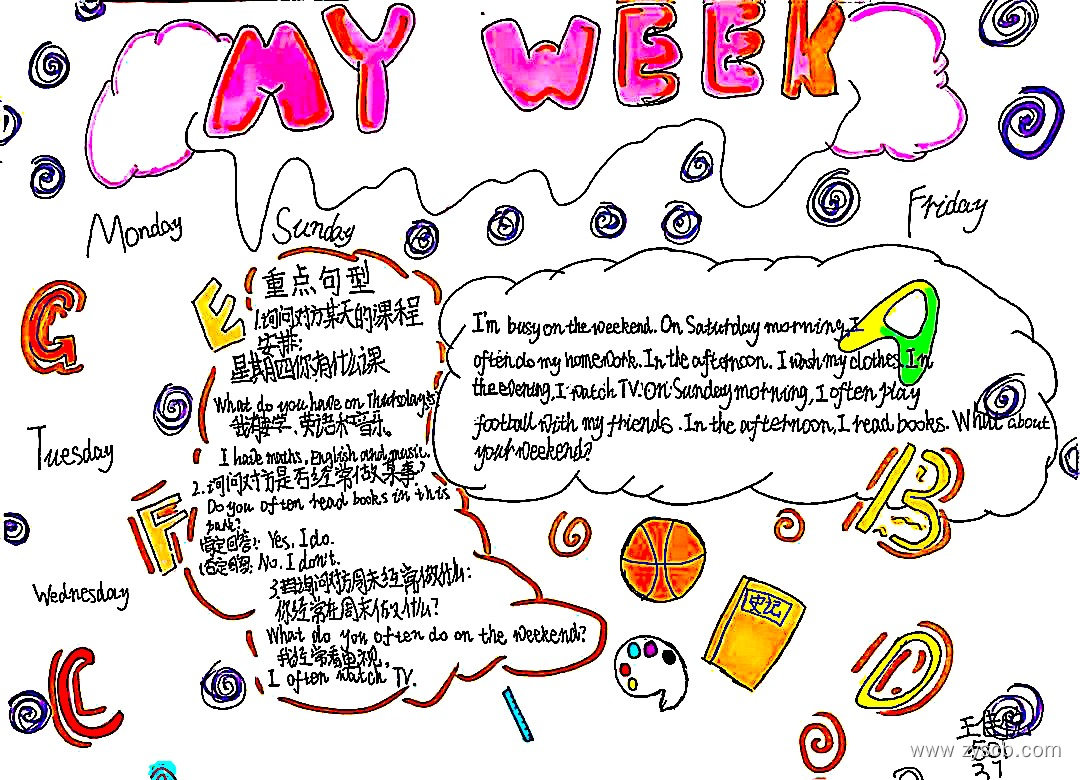 MY WEEK
Monday
Sunday
Friday
G
E
重点句型
1.询问对方某天的课程
安排:
星期四你有什么课
What do you have on Thursdays?
我有数学、英语和音乐。
I have maths, English and music.
2.询问对方是否经常做某事?
Do you often read books in this
park?
(肯定回答): Yes, I do.
(否定回答): No, I don't.
3.询问对方周末经常做什么:
你经常在周末做什么?
What do you often do on the weekend?
我经常看电视。
I often watch TV.
A
I'm busy on the weekend. On Saturday morning, I
often do my homework. In the afternoon. I wash my clothes. In
the evening, I watch TV. On Sunday morning, I often play
football with my friends. In the afternoon, I read books. What about
your weekend?
Tuesday
F
B
Wednesday
史记
C
D
王佳
501
37
www.zyscb.com